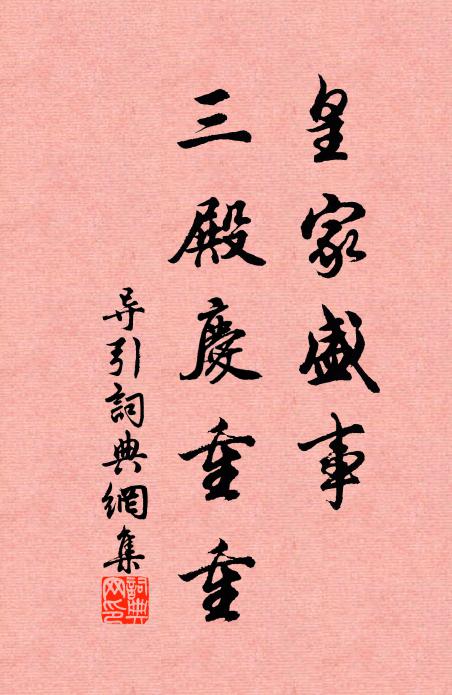 皇家盛事
三殿慶重重
导引詞典網集
詞典网印